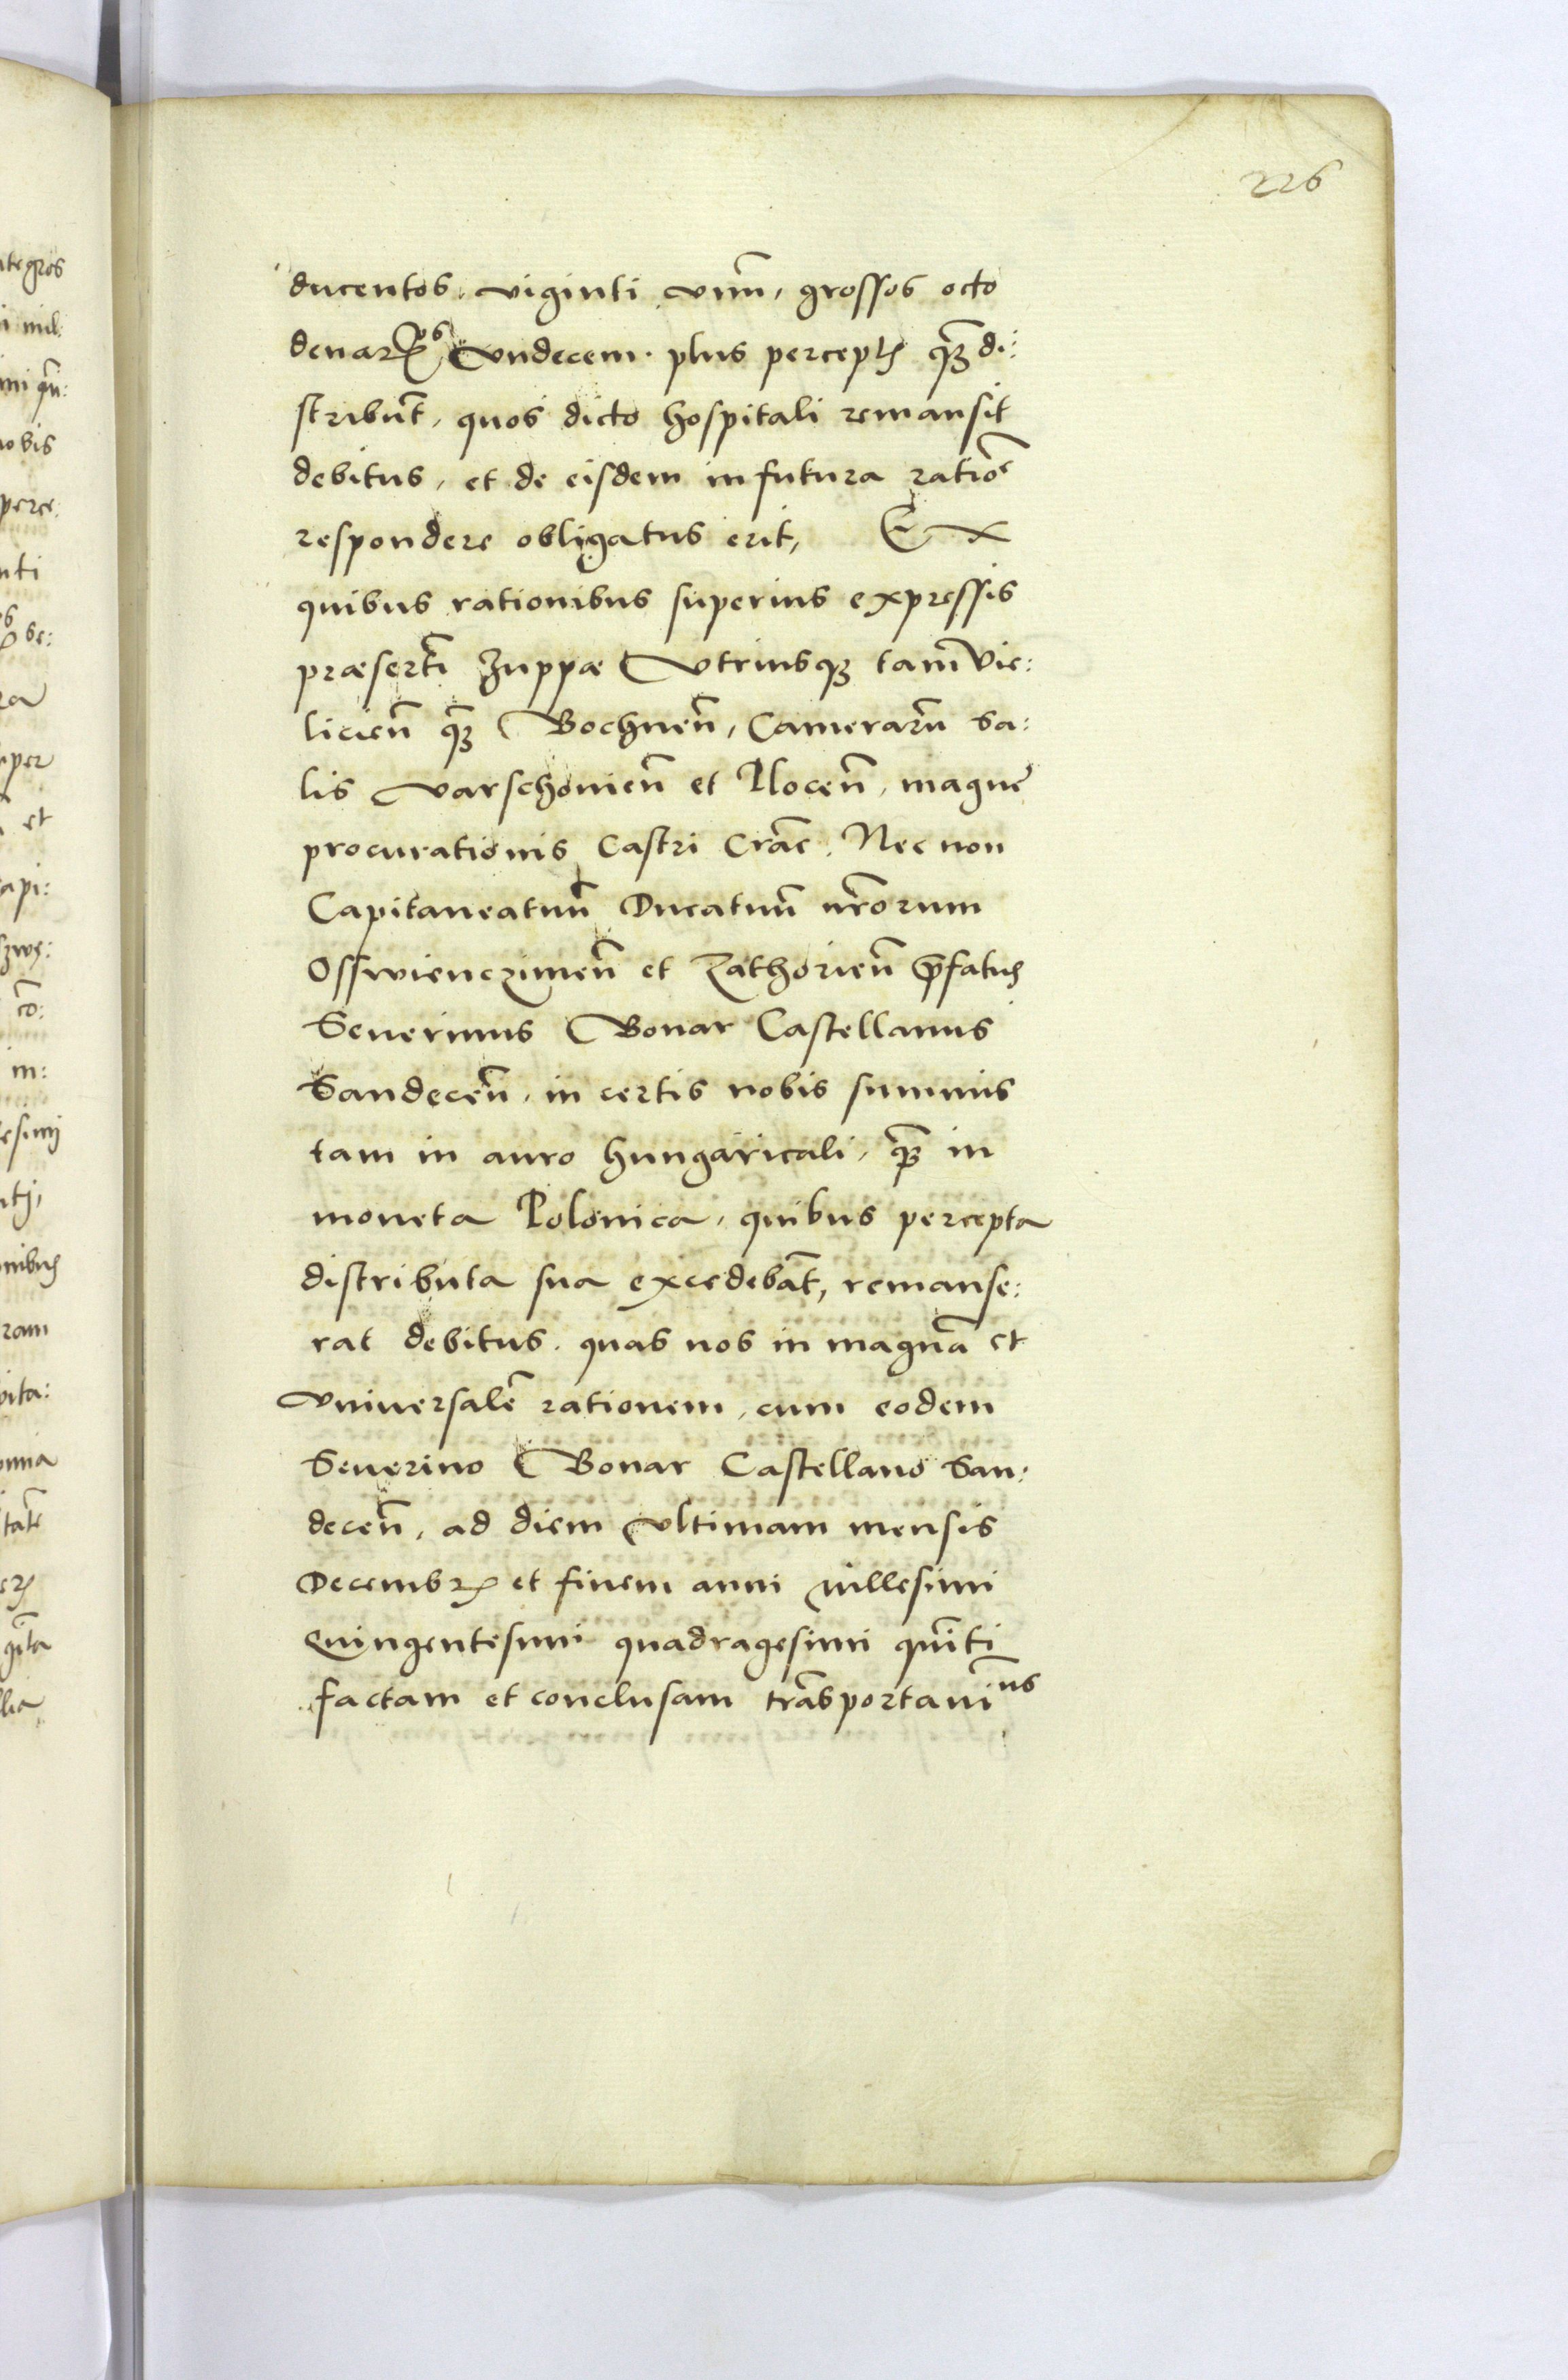 226
ducentos, viginti unu͂, grossos octo
denar͂os Undecem. plus percept͂ q͂ꝫ di:
stribu͂t, quos dicto hospitali remansit
debitus, et de eisdem in futura ratio͂e
respondere obligatus erit, Ex
quibus rationibus superius expressis
præserti͂ Zuppæ Utriusqꝫ tam Vie:
licien͂ q͂ꝫ Bochnen͂, Cameraru͂ Sa:
lis Varschouien͂ et Plocen͂, magne
procurationis Castri Crac͂. Nec non
Capitaneatuu͂ Ducatuu͂ nr͂orum
Osswienczimen͂ et Zathorien͂ p͂fatus
Seuerinus Bonar Castellanus
Sandecen͂, in certis nobis summis
tam in auro hungaricali, q͂ꝫ in
moneta Polonica, quibus percepta
distributa sua excedeba͂t, remanse:
rat debitus. quas nos in magna͂ et
Vniuersale͂ rationem, cum eodem
Seuerino Bonar Castellano San:
decen͂, ad diem Vltimam mensis
Decembr͂ et finem anni Millesimi
Quingentesimi quadragesimi qui͂ti
factam et conclusam tra͂sportauimus